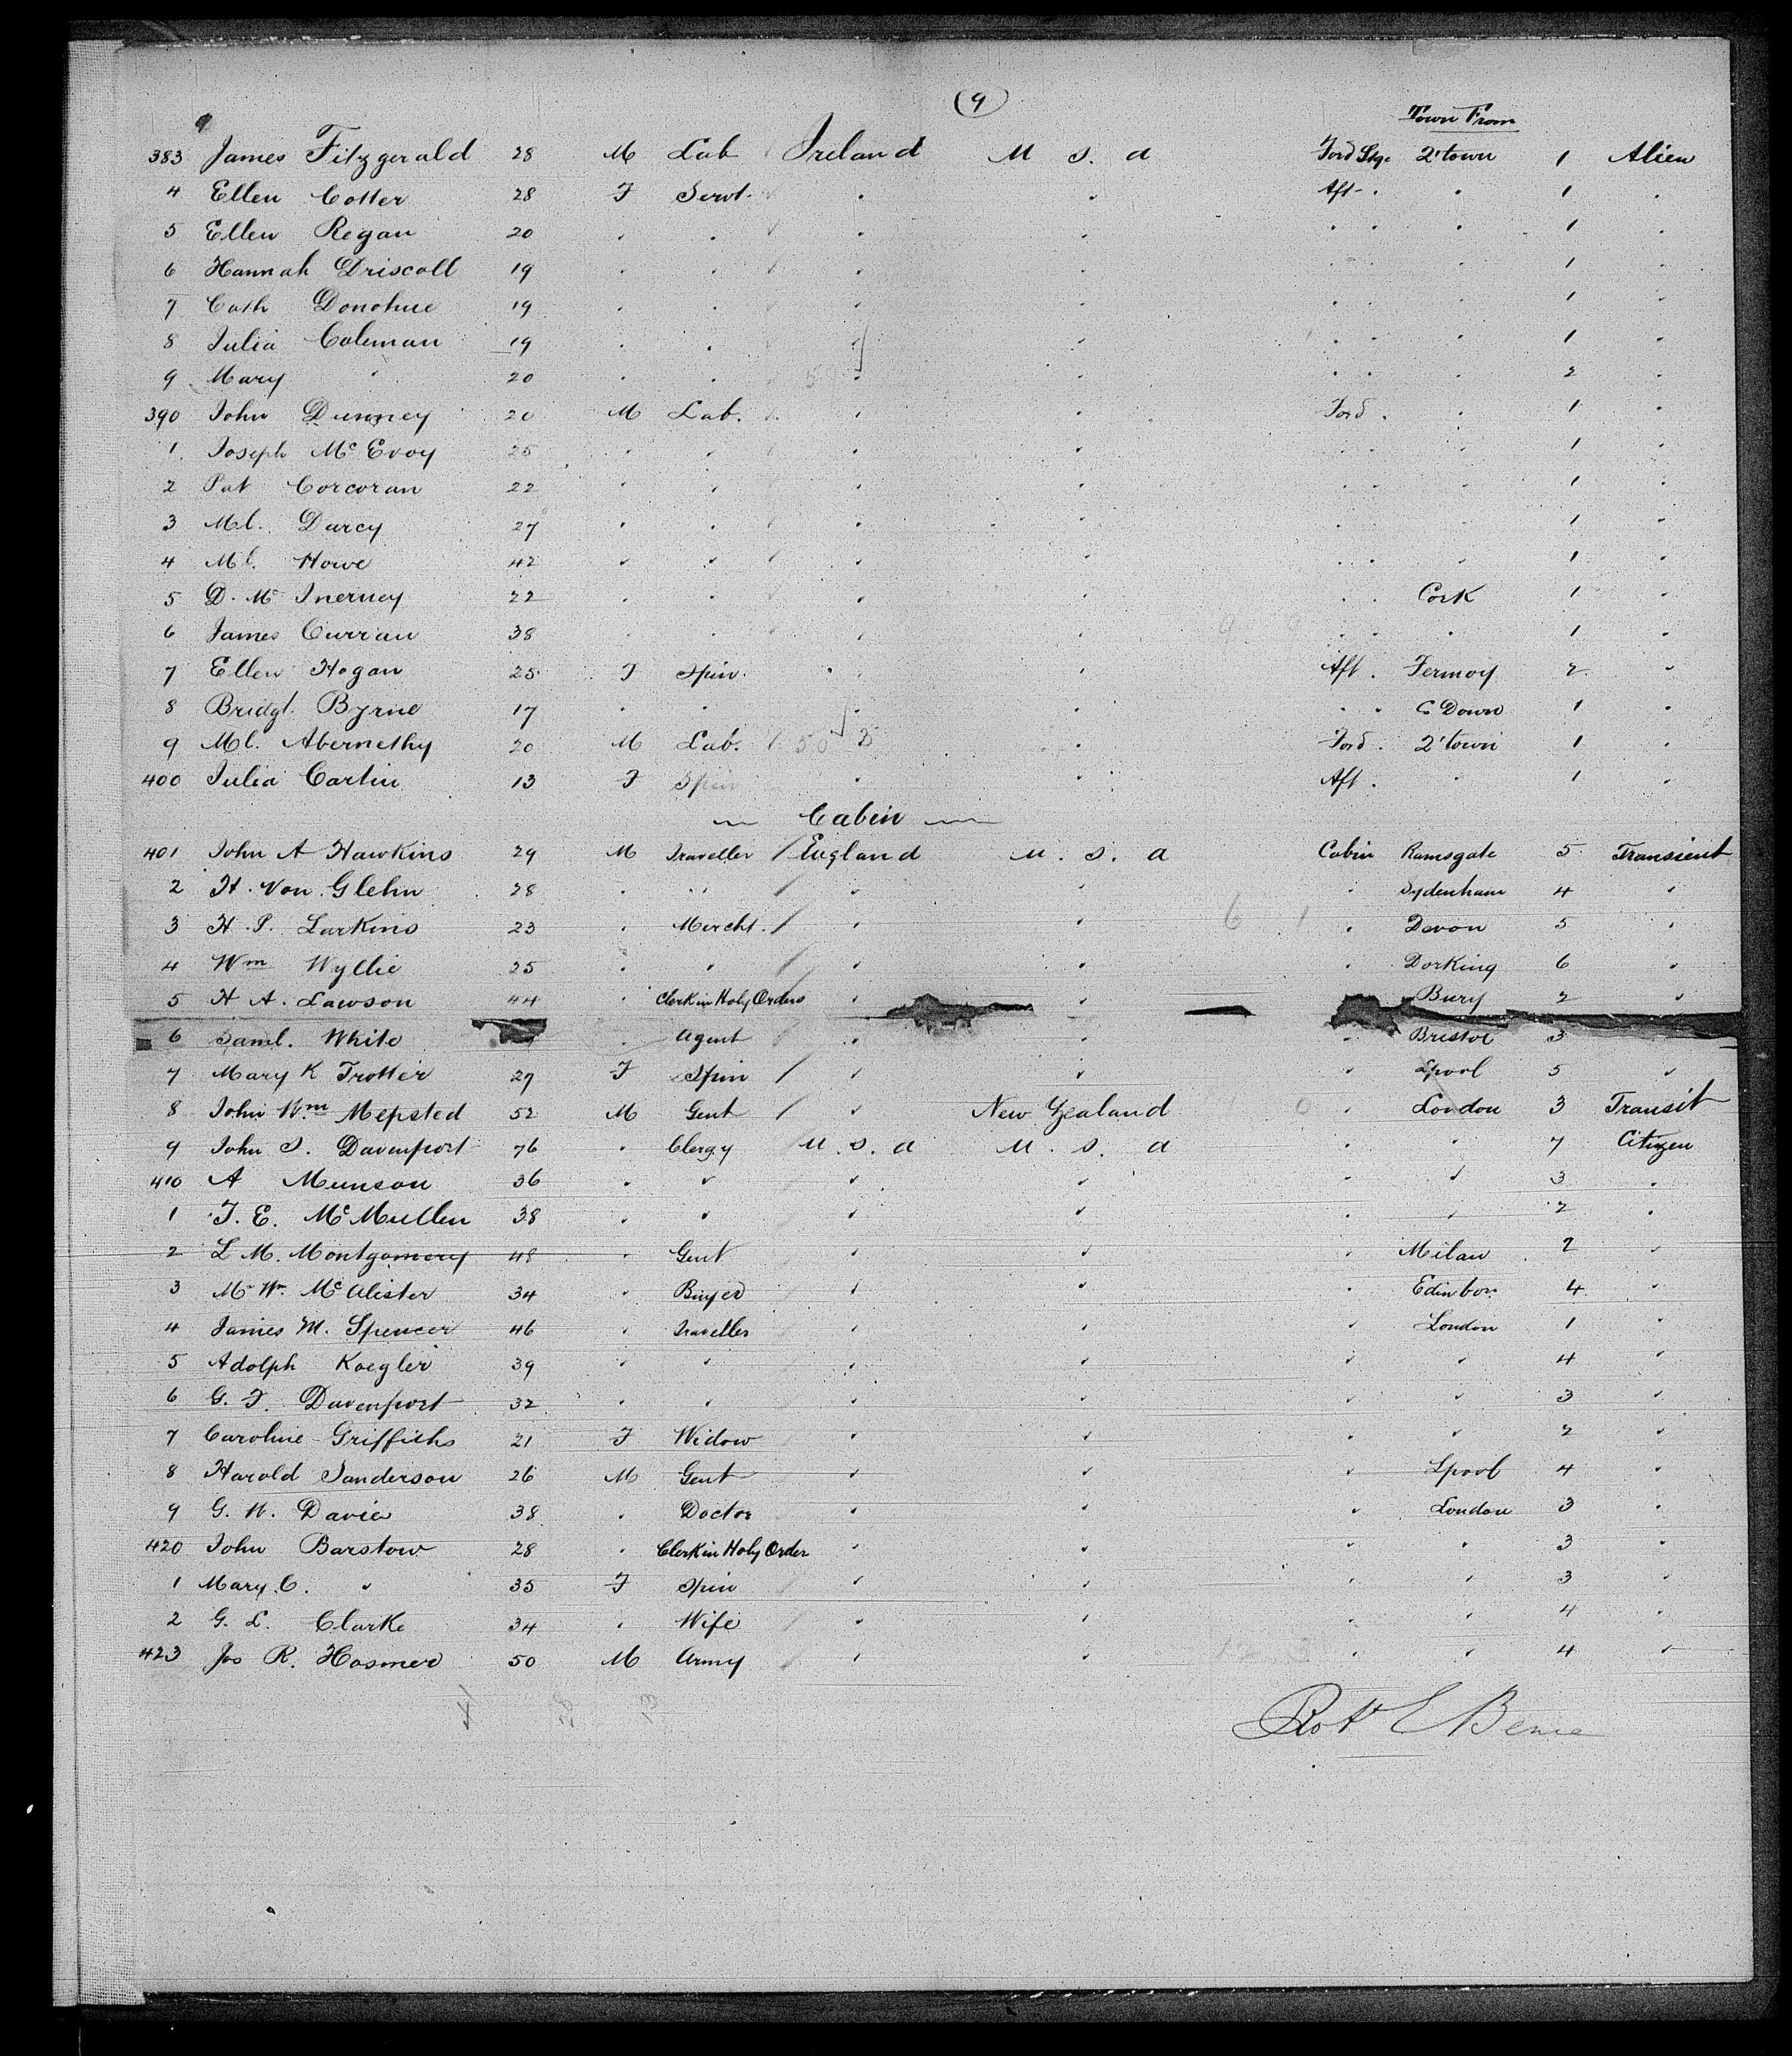 (9)
Town From
383 James Fitzgerald 28 M Lab Ireland U S. a Ford Stge Q'town 1 Alien
4 Ellen Cotter 28 F Servt. " " Aft " " 1 "
5 Ellen Regan 20 " " " " " " " 1 "
6 Hannah Driscoll 19 " " " " " " 1 "
7 Cath Donohue 19 " " " " " " 1 "
8 Julia Coleman 19 " " " " " " 1 "
9 Mary " 20 " " " " " " 2 "
390 John Dunney 20 M Lab. " " Ford. " 1 "
1 Joseph McEvoy 25 " " " " " " 1 "
2 Pat Corcoran 22 " " " " " " " 1 "
3 Ml. Darcy 27 " " " " " " 1 "
4 Ml. Howe 42 " " " " " " " 1 "
5 D. Mc Inerney 22 " " " " " " Cork 1 "
6 James Curran 38 " " " " " " " 1 "
7 Ellen Hogan 25 F Spin. " " Aft. Fermoy 2 "
8 Bridgt. Byrne 17 " " " " " " C Down 1 "
9 Ml. Abernethy 20 M Lab. " Ford. Q'town 1 "
400 Julia Cartin 13 F Spin " " Aft. " 1 "
— Cabin —
401 John A Hawkins 29 M Traveller England U. S. a Cabin Ramsgate 5 Transient
2 H. Von Glehn 28 " " " " " Sydenham 4 "
3 H. P. Larkins 23 " Mercht. " " " Devon 5 "
4 Wm Wyllie 25 " " " " " Dorking 6 "
5 H A. Lawson 44 " Clerk in Holy Orders " " Bury 2 "
6 Saml. White " Agent " " " Bristol 3
7 Mary K Trotter 27 F Spin " " " Lpool 5 "
8 John Wm Mepsted 52 M Gent " New Zealand " London 3 Transit
9 John S. Davenport 76 " Clergy U. S. a U. S. a " " 7 Citizen
410 A Munson 36 " " " " " " 3 "
1 T. E. McMullen 38 " " " " " " 2 "
2 L M. Montgomery 48 " Gent " " " Milan 2 "
3 Mr Wm. McAlister 34 " Buyer " " " Edinbor. 4 "
4 James M. Spencer 46 " Traveller " " " London 1 "
5 Adolph Koegler 39 " " " " " " 4 "
6 G. F. Davenport 32 " " " " " " 3 "
7 Caroline Griffiths 21 F Widow " " " " 2 "
8 Harold Sanderson 26 M Gent " " " Lpool 4 "
9 G. W. Davis 38 " Doctor " " " London 3 "
420 John Barstow 28 " Clerk in Holy Order " " " " 3 "
1 Mary C. " 35 F Spin " " " " 3 "
2 G. L. Clarke 34 " Wife " " " " 4 "
423 Jos R. Hosmer 50 M Army " " " " 4 "
Robt E